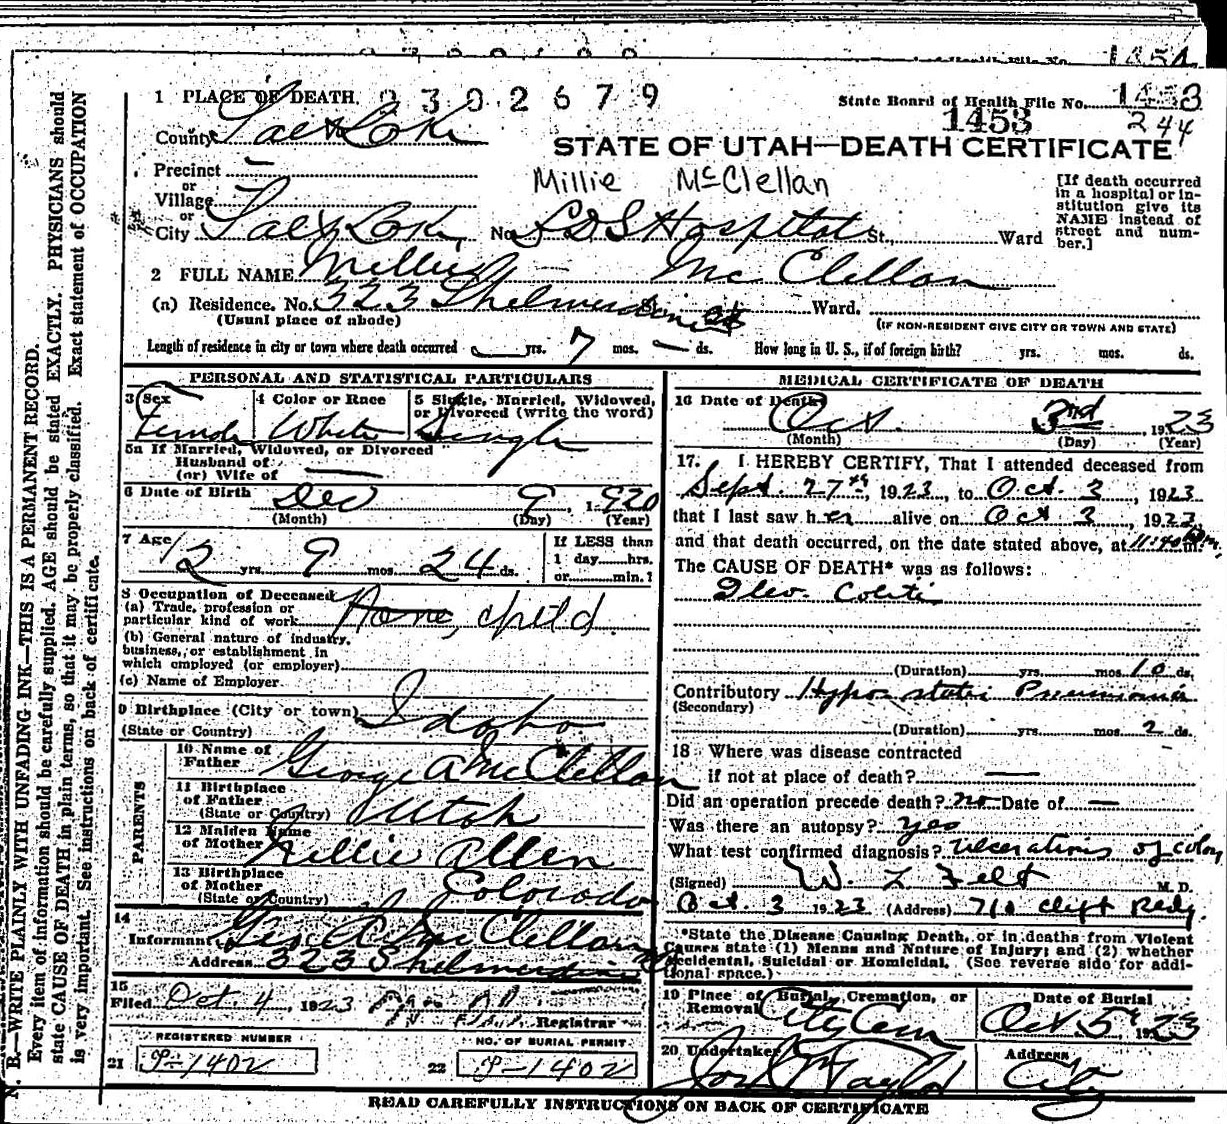 1454
1 PLACE OF DEATH. 0302679
State Board of Health File No. 1453
1453
244
County Salt Lake
STATE OF UTAH—DEATH CERTIFICATE
Precinct —
or
Village
or
Millie McClellan
[If death occurred in a hospital or institution give its NAME instead of street and number.]
City Salt Lake, No. LDS Hospital St., Ward
2 FULL NAME Millie — McClellan
(a) Residence. No. 323 Shelmerdine Ct Ward.
(Usual place of abode)
(IF NON-RESIDENT GIVE CITY OR TOWN AND STATE)
Length of residence in city or town where death occurred — yrs. 7 mos. — ds. How long in U. S., if of foreign birth? yrs. mos. ds.
N. B.—WRITE PLAINLY WITH UNFADING INK—THIS IS A PERMANENT RECORD.
Every item of information should be carefully supplied. AGE should be stated EXACTLY. PHYSICIANS should
state CAUSE OF DEATH in plain terms, so that it may be properly classified. Exact statement of OCCUPATION
is very important. See instructions on back of certificate.
PERSONAL AND STATISTICAL PARTICULARS
3 Sex
Female
4 Color or Race
White
5 Single, Married, Widowed,
or Divorced (write the word)
Single
5a If Married, Widowed, or Divorced
Husband of
(or) Wife of —
6 Date of Birth Dec 9, 1920
(Month) (Day) (Year)
7 Age 2 yrs. 9 mos. 24 ds.
If LESS than
1 day hrs.
or min.?
8 Occupation of Deceased
(a) Trade, profession or
particular kind of work child
(b) General nature of industry,
business, or establishment in
which employed (or employer)
(c) Name of Employer
9 Birthplace (City or town)
(State or Country) Idaho
PARENTS
10 Name of
Father George A McClellan
11 Birthplace
of Father
(State or Country) Utah
12 Maiden Name
of Mother Nellie Allen
13 Birthplace
of Mother
(State or Country) Colorado
14
Informant Geo A McClellan
Address 323 Shelmerdine
15
Filed Oct. 4, 1923 Registrar
REGISTERED NUMBER
21 P-1402
NO. OF BURIAL PERMIT
22 P-1402
MEDICAL CERTIFICATE OF DEATH
16 Date of Death
Oct. 3rd, 1923
(Month) (Day) (Year)
17. I HEREBY CERTIFY, That I attended deceased from
Sept. 27th, 1923, to Oct. 3, 1923
that I last saw her alive on Oct 3, 1923
and that death occurred, on the date stated above, at 11:40 Pm.
The CAUSE OF DEATH* was as follows:
Ileo Colitis
(Duration) yrs. mos. 10 ds.
Contributory Hypostatic Pneumonia
(Secondary)
(Duration) yrs. mos. 2 ds.
18 Where was disease contracted
if not at place of death? —
Did an operation precede death? no Date of —
Was there an autopsy? yes
What test confirmed diagnosis? ulcerations of colon
(Signed) W. L. Felt M. D.
Oct. 3 1923 (Address) 710 Clift Bldg.
*State the Disease Causing Death, or in deaths from Violent
Causes state (1) Means and Nature of Injury; and (2) whether
Accidental, Suicidal or Homicidal. (See reverse side for addi-
tional space.)
19 Place of Burial, Cremation, or
Removal City Cem
Date of Burial
Oct. 5, 1923
20 Undertaker
Jos Wm Taylor
Address
City
READ CAREFULLY INSTRUCTIONS ON BACK OF CERTIFICATE